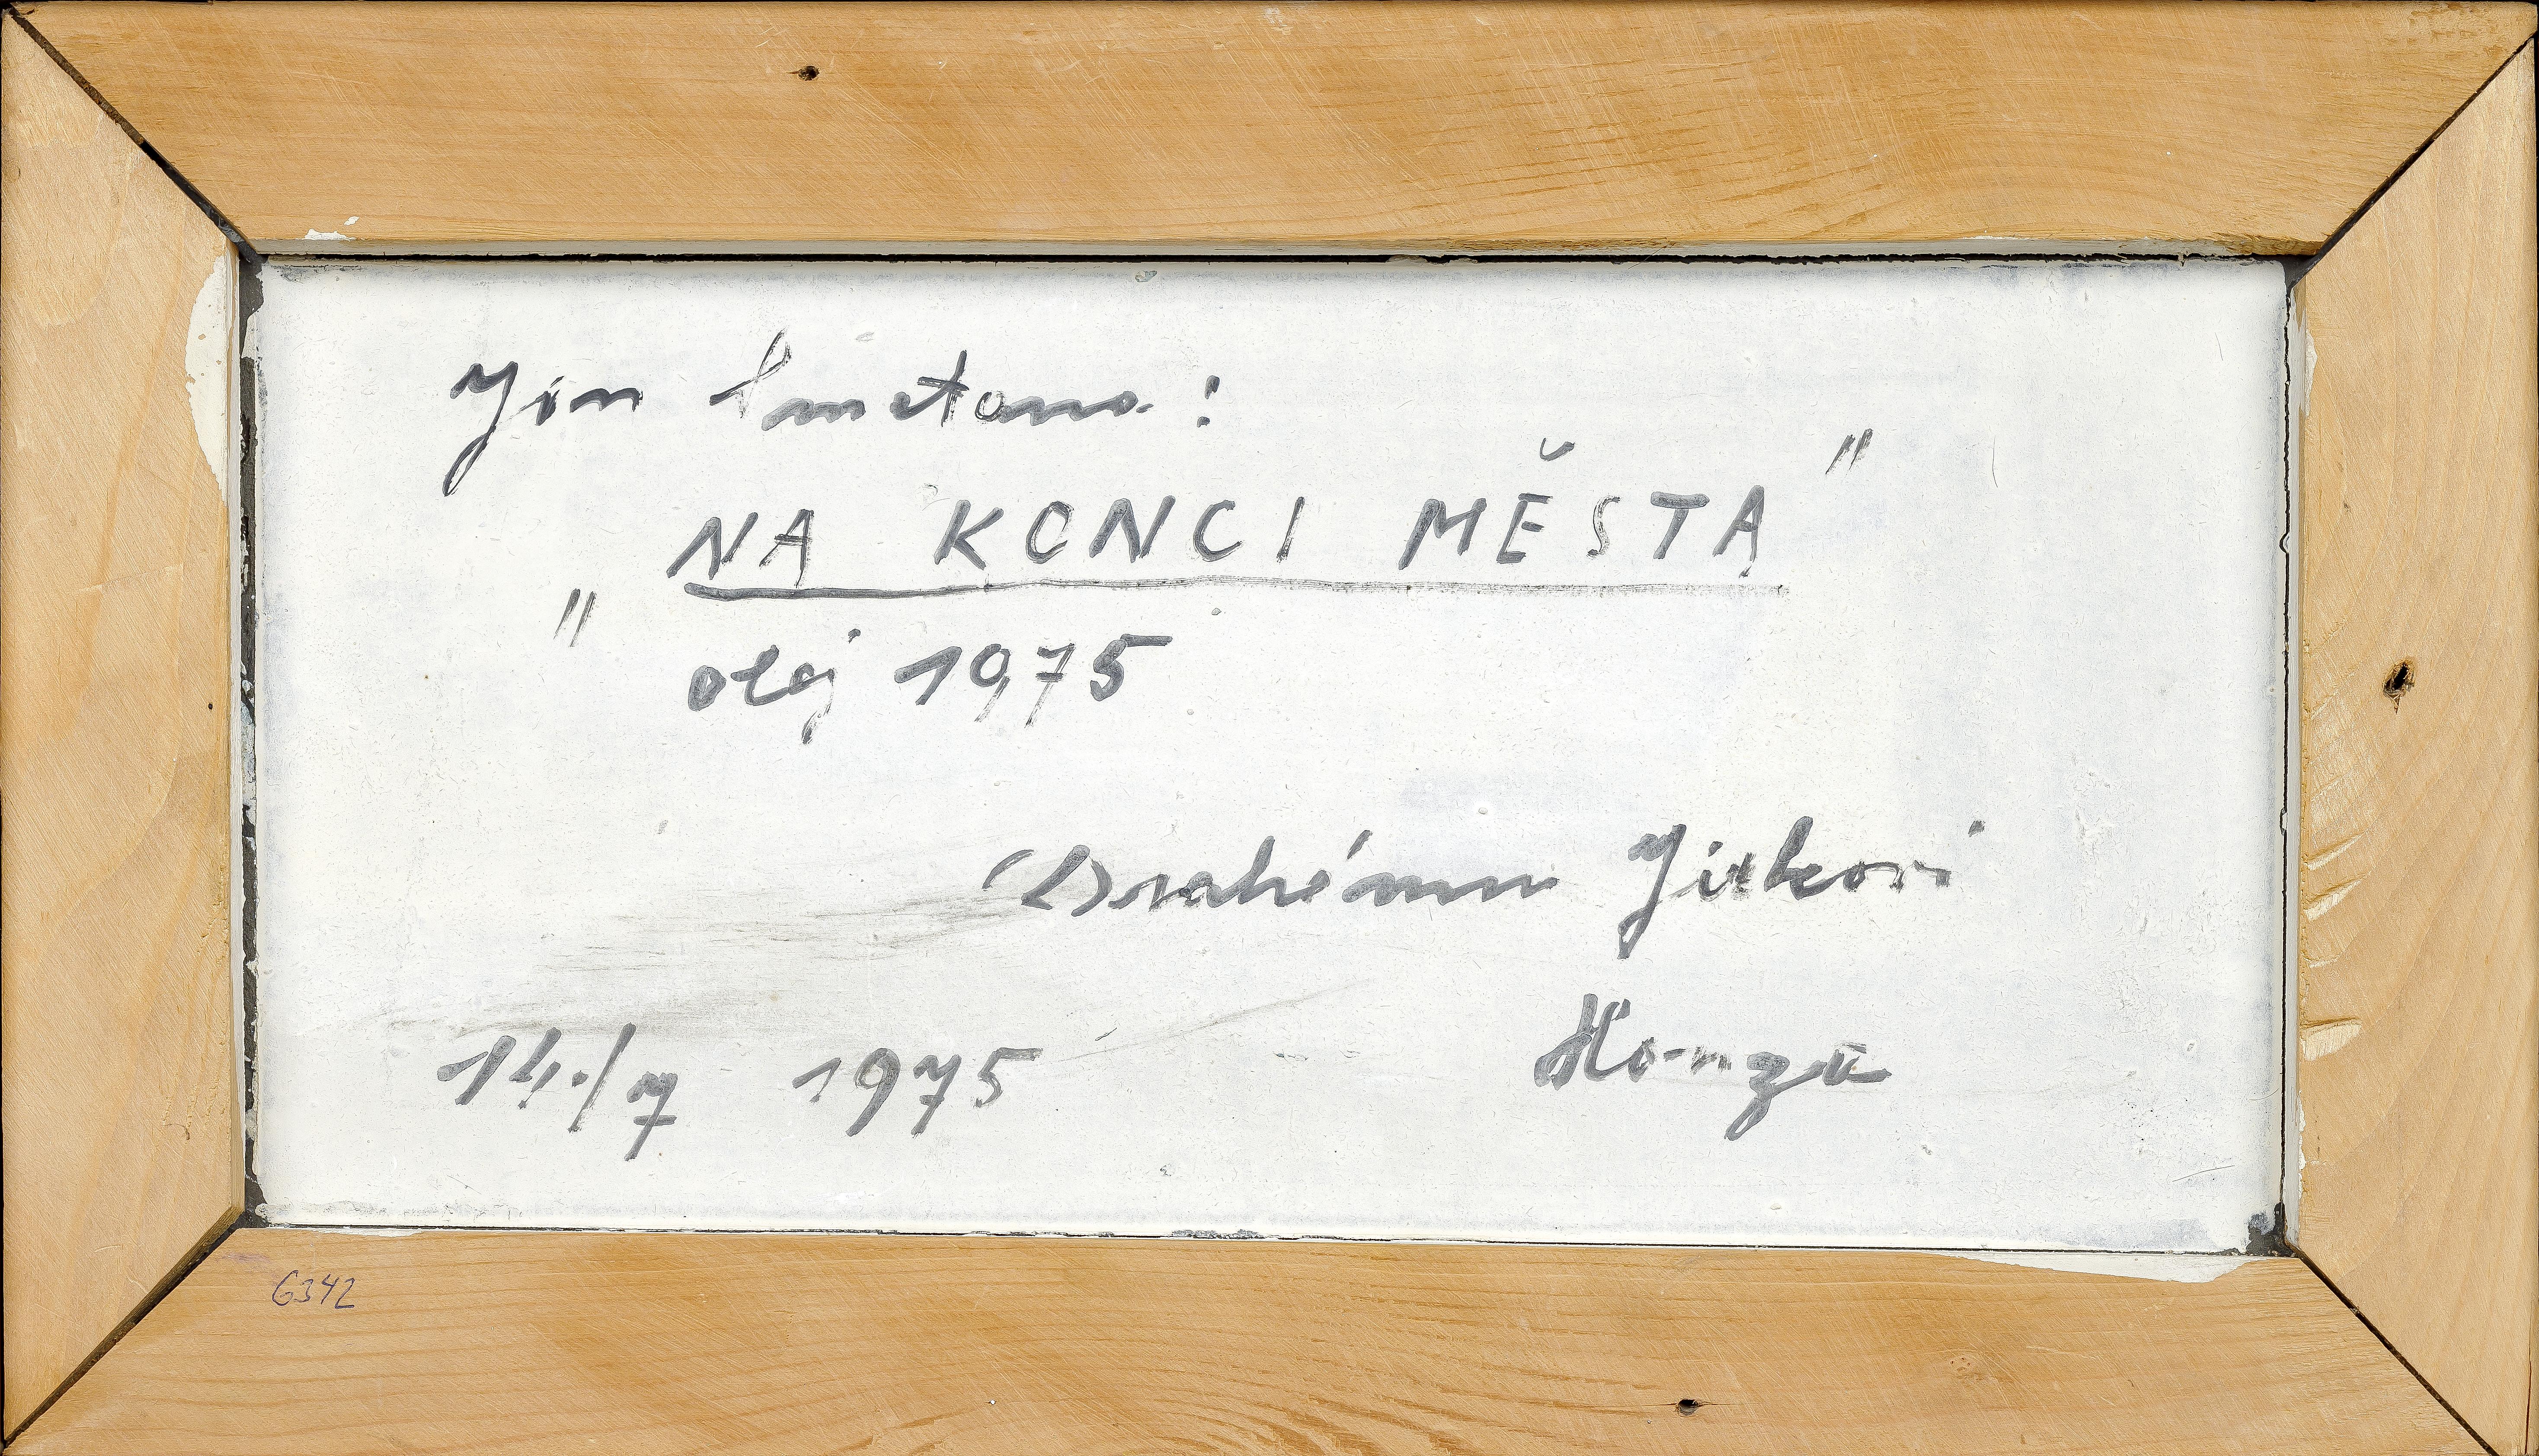 Jan Smetana:
„NA KONCI MĚSTA"
olej 1975
Drahému Jirkovi
Honza
14./7 1975
6342